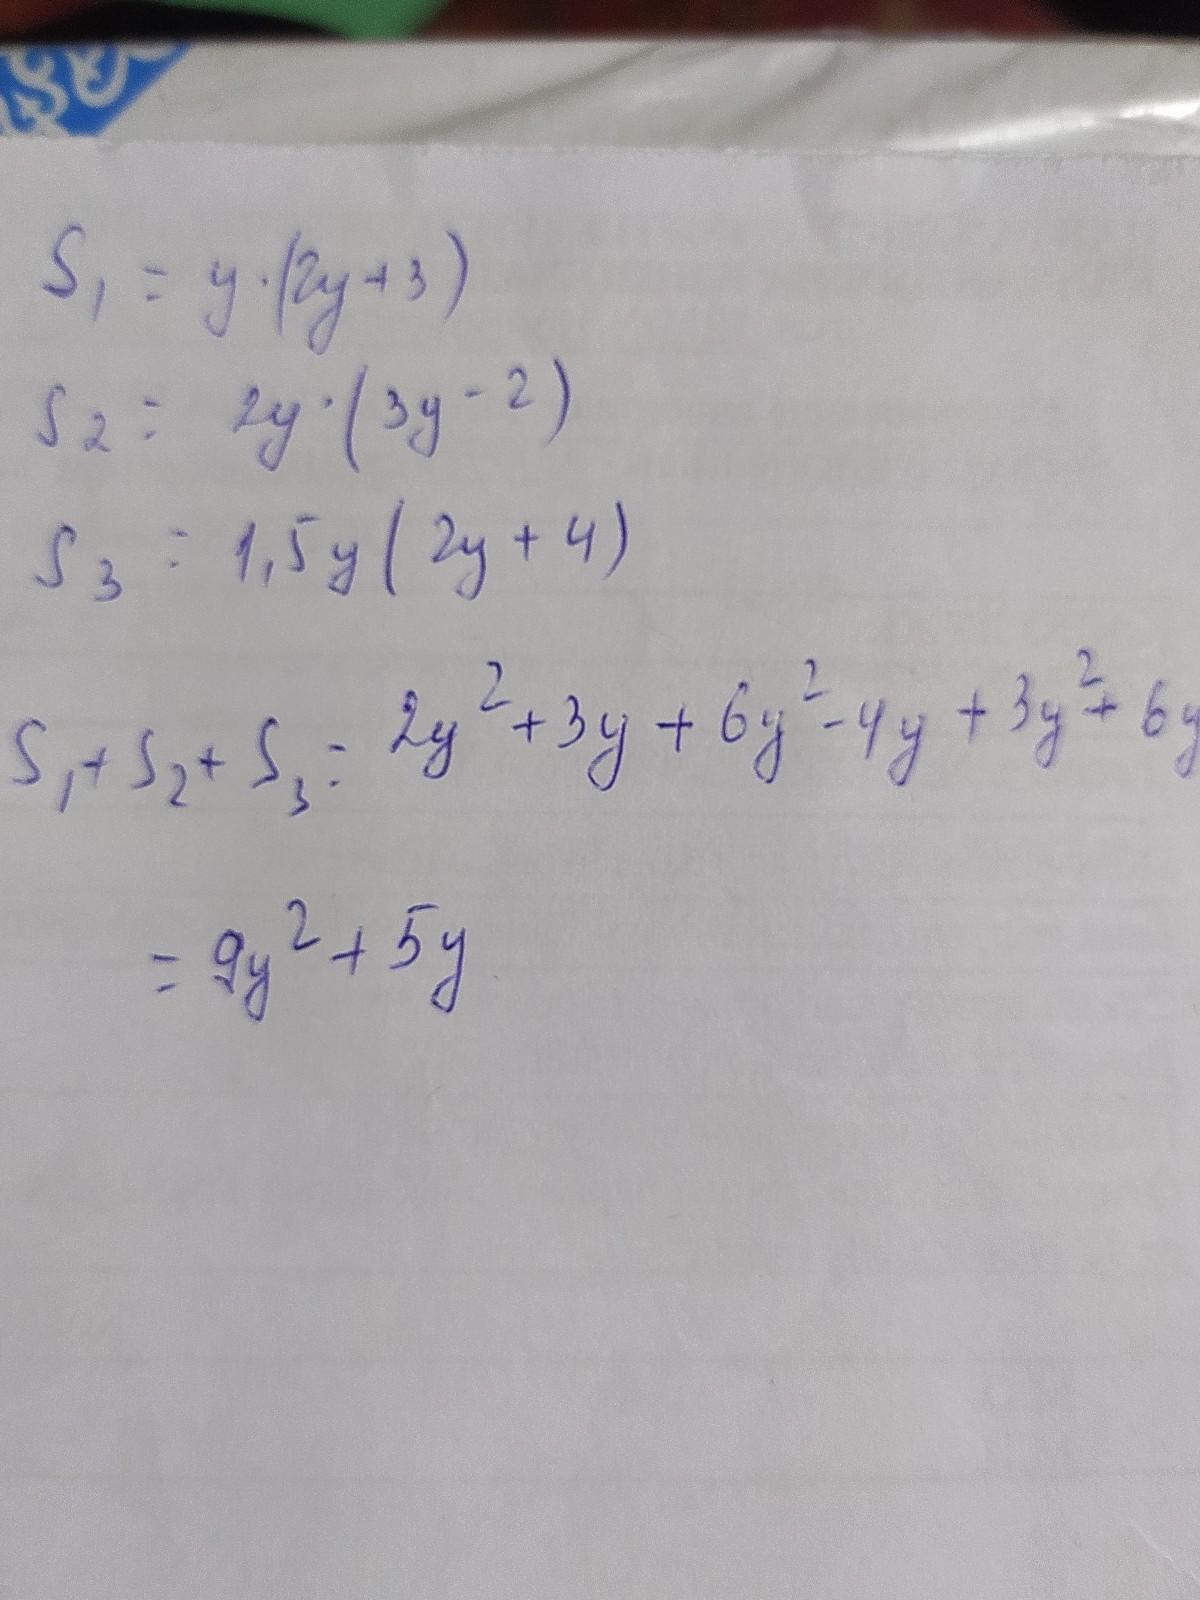 S₁ = y·(2y+3)
S₂ = 2y·(3y-2)
S₃ = 1,5y(2y+4)
S₁+S₂+S₃= 2y²+3y+6y²-4y+3y²+6y
= 9y²+5y